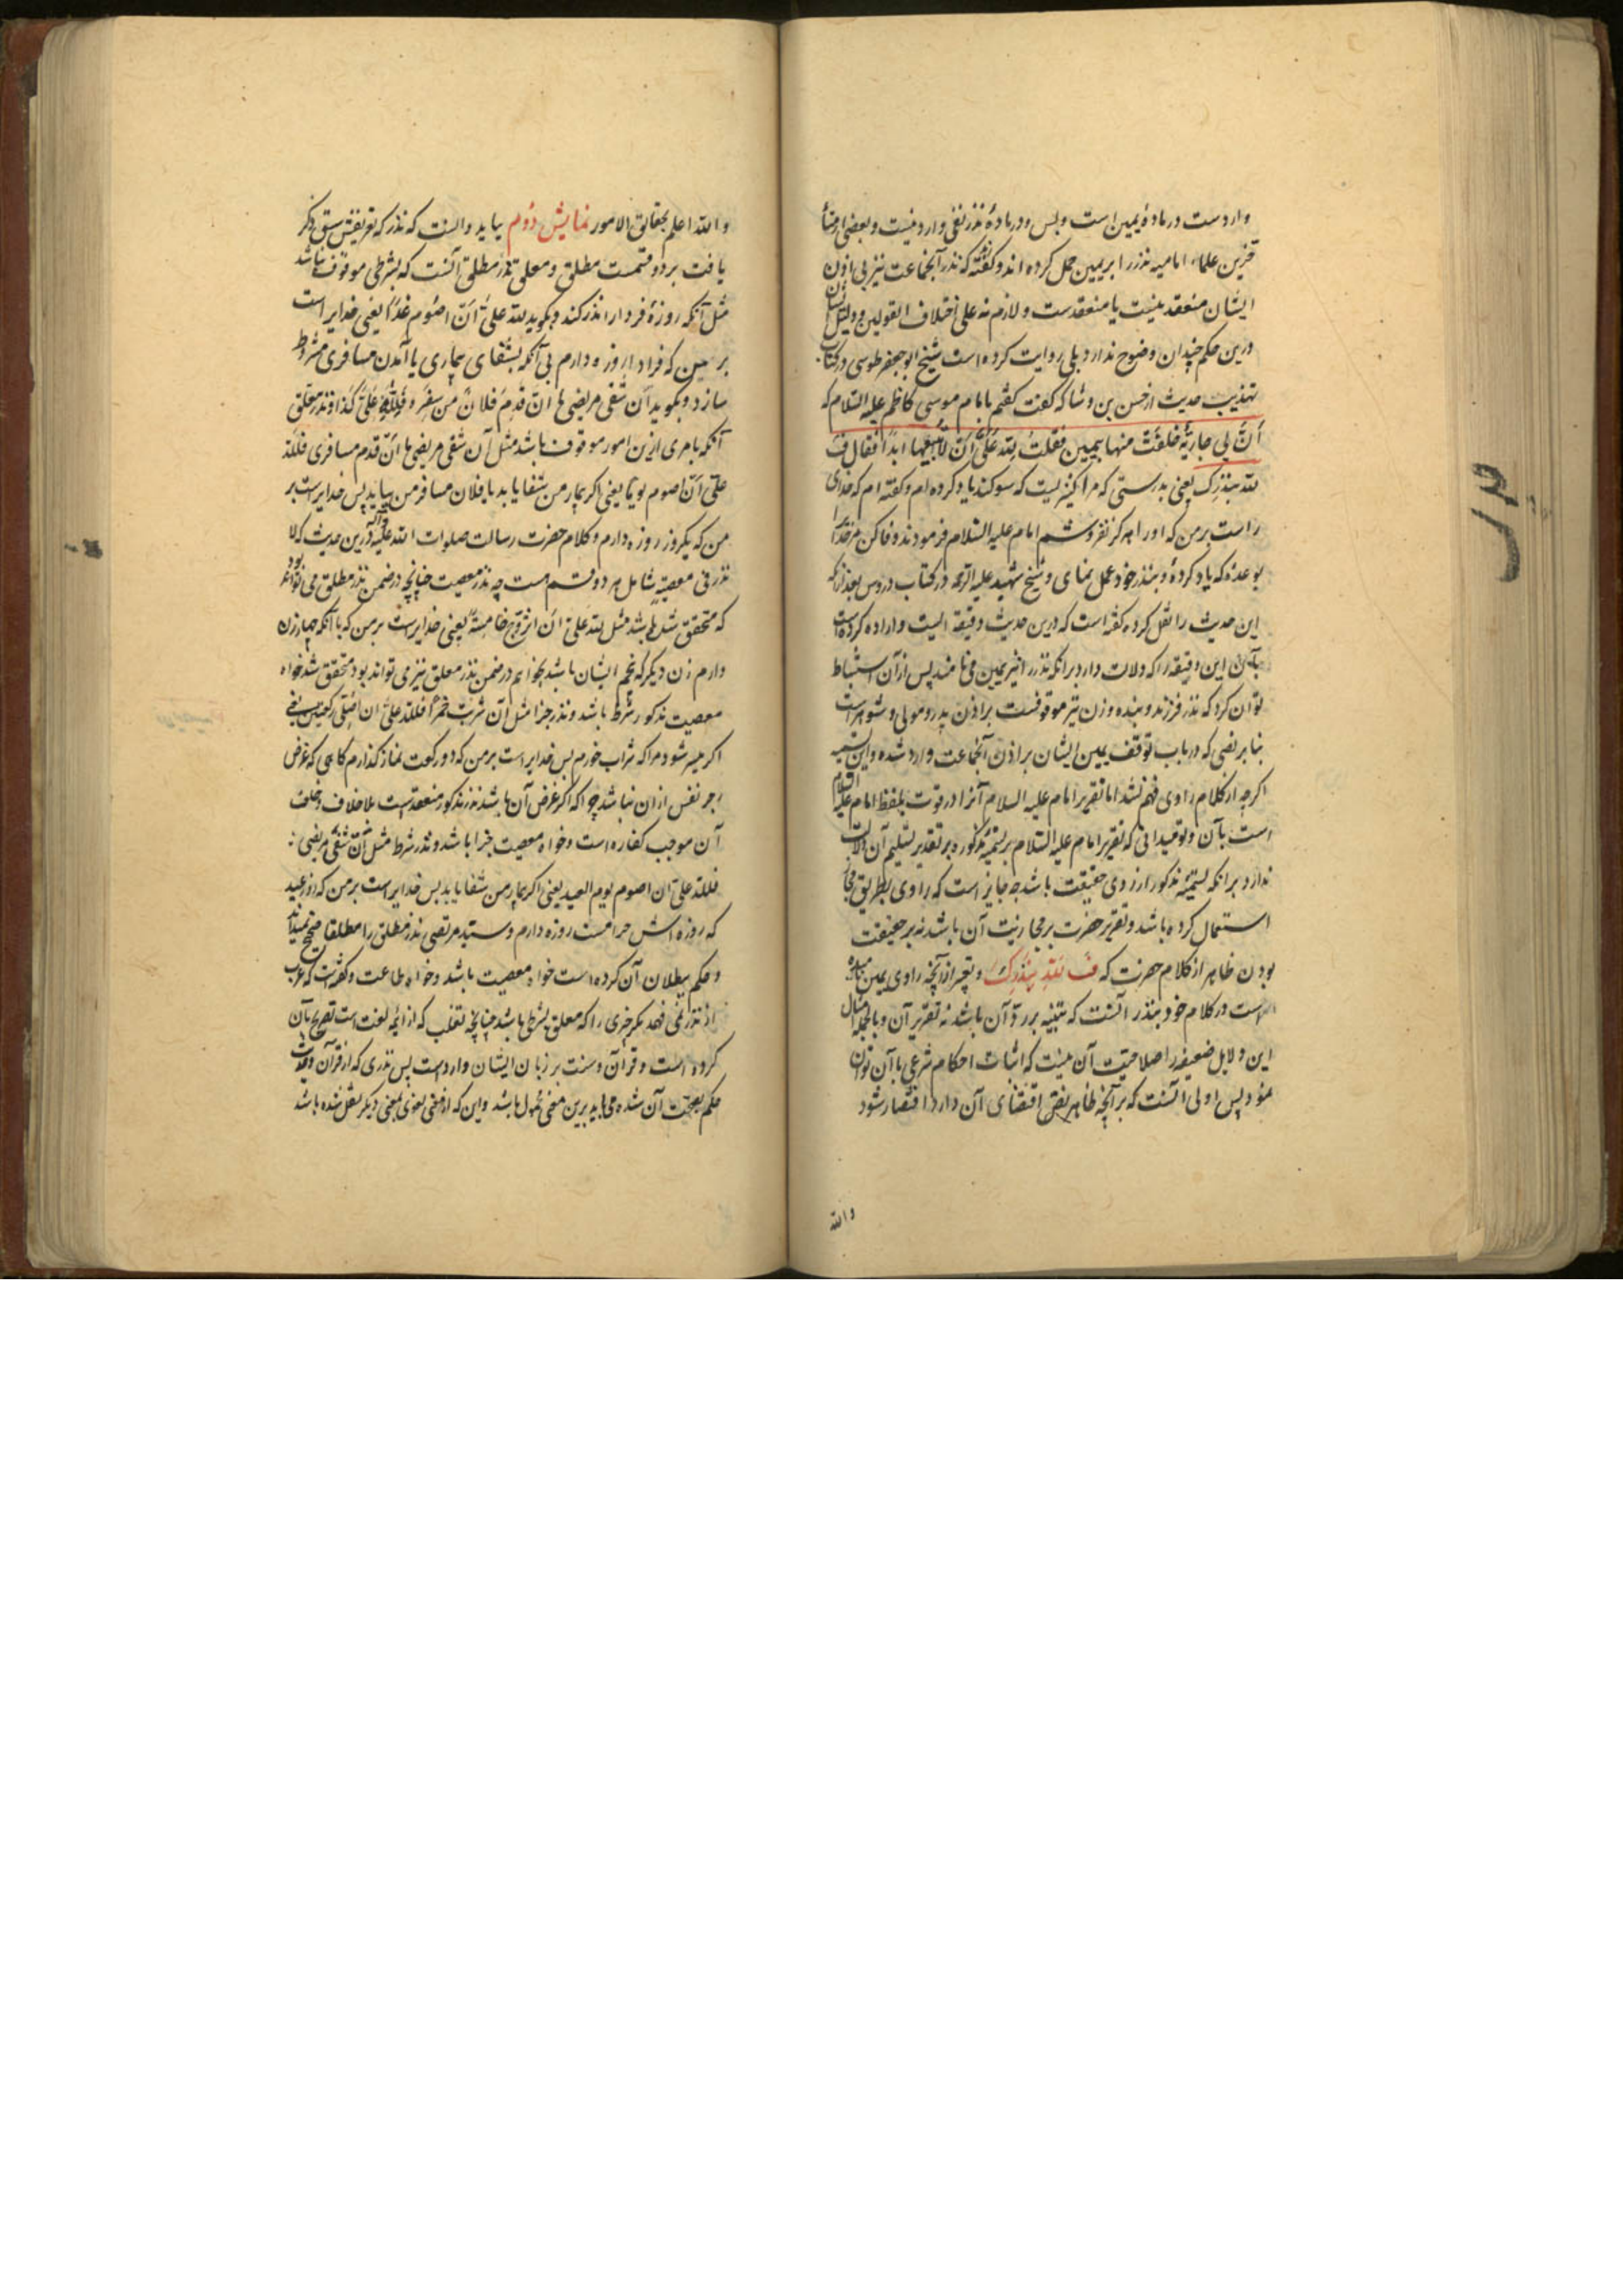 واردست در مادهٔ یمین است و بس و در مادهٔ نذر نفی وارد نیست و بعضی از متأ
خرین علماء امامیه نذر را بر یمین حمل کرده‌اند و گفته که نذر آنجماعت نیز بی اذن
ایشان منعقد نیست یا منعقدست و لازم نه علی اختلاف القولین و دلیل ایشان
درین حکم چندان وضوح ندارد بلی روایت کرده است شیخ ابو جعفر طوسی در کتاب
تهذیب حدیث از حسن بن وشا که گفت گفتم بامام موسی کاظم علیه السلام که
اَنَّ لی جاریة حلفت منها بیمین فقلت لله علیَّ اَن لا أبیعها ابداً فقال فِ
لله بنذرک یعنی بدرستی که مرا کنیزیست که سوگند یاد کرده‌ام و گفته‌ام که خدای
راست بر من که او را هرگز نفروشم امام علیه السلام فرمودند وفا کن مر خدا را
بوعدهٔ که یاد کردهٔ و بنذر خود عمل نمای و شیخ شهید علیه الرحمه در کتاب دروس بعد از آنکه
این حدیث را نقل کرده گفته است که درین حدیث دقیقه ایست و اراده کرده است
بآن این دقیقه را که دلالت دارد برانکه نذر را نیز یمین می نامند پس از آن استنباط
توان کرد که نذر فرزند و بنده و زن نیز موقوفست بر اذن پدر و مولی و شوهر است
بنا بر نصی که در باب توقف یمین ایشان بر اذن آنجماعت وارد شده و این تسمیه
اگرچه از کلام راوی فهم شد اما تقریر امام علیه السلام آنرا در قوت تلفظ امام علیه السلام
است بآن و تو میدانی که تقریر امام علیه السلام بر تسمیهٔ مذکور و بر تقدیر تسلیم آن دلالت
ندارد برانکه تسمیهٔ مذکور از روی حقیقت باشد چه جایز است که راوی بطریق مجاز
استعمال کرده باشد و تقریر حضرت بر مجازیت آن باشد نه بر حقیقت
بودن ظاهر از کلام حضرت که فِ لله بنذرک و تعبیر از آنچه راوی یمین نامیده
است در کلام خود بنذر آنست که تنبیه بر رد آن باشد نه تقریر آن و بالجمله امثال
این دلایل ضعیفه را صلاحیت آن نیست که اثبات احکام شرعی بآن توان
نمود پس اولی آنست که بر آنچه ظاهر نص اقتضای آن دارد اقتصار شود
والله
والله اعلم بحقایق الامور نمایش دوم بباید دانست که نذر که تعریفش سبق ذکر
یافت بر دو قسمست مطلق و معلق نذر مطلق آنست که بشرطی موقوف نباشد
مثل آنکه روزهٔ فردا را نذر کند و بگوید لله علیَّ اَن اصوم غدًا یعنی خدایراست
بر من که فردا را روزه دارم بی آنکه بشفای بیماری یا آمدن مسافری مشروط
سازد و بگوید اَن شفی مریضی ها ان قدم فلان من سفر فلله علیَّ کذا و نذر معلق
آنکه بامری ازین امور موقوف باشد مثل آن شفی مریضی ها اَن قدم مسافری فلله
علیَّ اَن اصوم یومًا یعنی اگر بیمار من شفا یابد یا فلان مسافر من بیاید پس خدایراست بر
من که یکروز روزه دارم و کلام حضرت رسالت صلوات الله علیه و آله درین حدیث که لا
نذر فی معصیة شامل هر دو قسم است چه نذر معصیت چنانچه در ضمن نذر مطلق می تواند بود
که متحقق شد باشد مثل لله علیَّ اَن اتزوّج خامسةً یعنی خدایراست بر من که با آنکه چهار زن
دارم زن دیگر که پنجم ایشان باشد بخواهم در ضمن نذر معلق نیز می تواند بود متحقق شد خواه
معصیت مذکور شرط باشد و نذر جزا مثل اَن شربت خمرًا فلله علیَّ ان اصلی رکعتین یعنی
اگر میسر شود مرا که شراب خورم پس خدایراست بر من که دو رکعت نماز گذارم گاهی که غرض
زجر نفس ازان نباشد چرا که اگر غرض آن باشد نذر مذکور منعقدست بلا خلاف و خلف
آن موجب کفاره است و خواه معصیت جزا باشد و نذر شرط مثل اَن شفی مریضی
فلله علیَّ ان اصوم یوم العید یعنی اگر بیمار من شفا یابد پس خدایراست بر من که روز عید
که روزه اش حرامست روزه دارم و سید مرتضی نذر مطلق را مطلقا صحیح نمیداند
و حکم ببطلان آن کرده است خواه معصیت باشد و خواه طاعت و گفته است که عرب
از نذر نمی فهمد مگر چیزی را که معلق بشرط باشد چنانچه تغلب که از ائمهٔ لغت است تصریح بآن
کرده است و قرآن و سنت بر زبان ایشان واردست پس نذری که از قرآن و حدیث
حکم بصحت آن شده می باید برین معنی محمول باشد و این که از معنی لغوی بمعنی دیگر نقل شده باشد